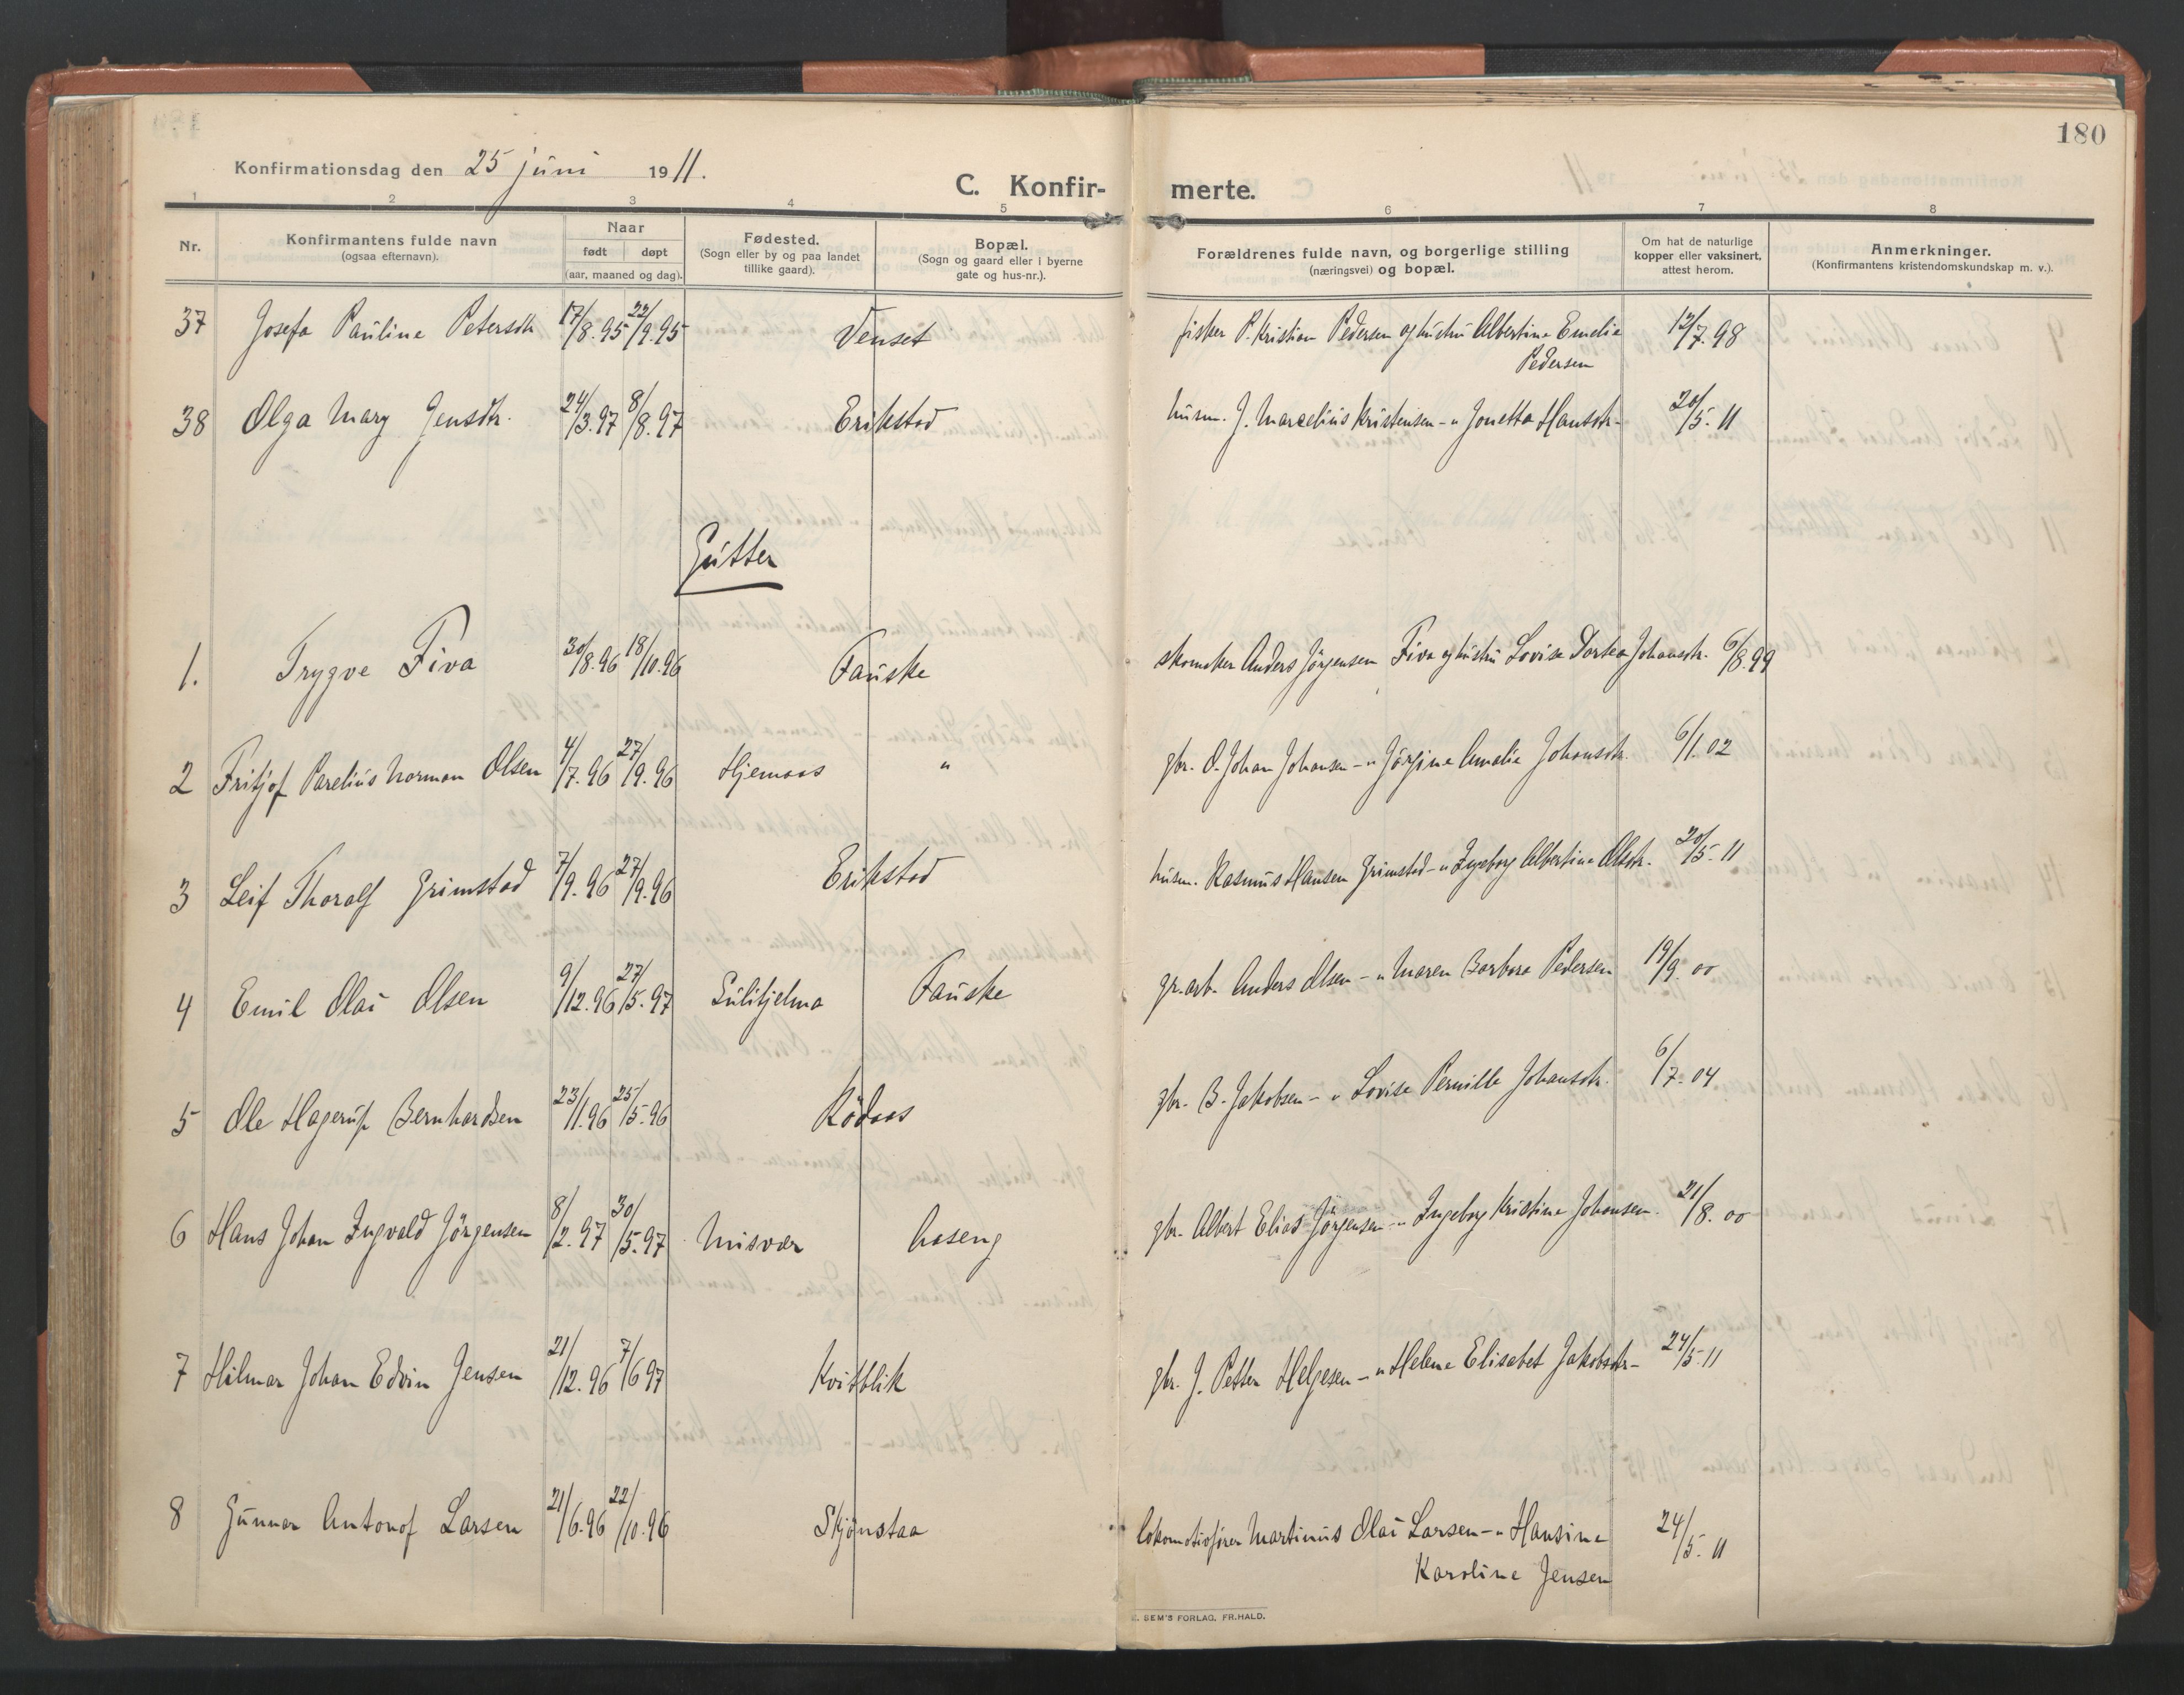 180
Konfirmationsdag den 25 juni 1911.
C. Konfir- merte.
1 2 3 4 5 6 7 8
Nr.
Konfirmantens fulde navn
(ogsaa efternavn).
Naar
født døpt
(aar, maaned og dag).
Fødested.
(Sogn eller by og paa landet
tillike gaard).
Bopæl.
(Sogn og gaard eller i byerne
gate og hus-nr.).
Forældrenes fulde navn, og borgerlige stilling
(næringsvei) og bopæl.
Om hat de naturlige
kopper eller vaksinert,
attest herom.
Anmerkninger.
(Konfirmantens kristendomskundskap m. v.).
37 Josefa Pauline Petersdtr 17/8.95 22/9.95 Venset fisker P. Kristian Pedersen og hustru Albertine Emelie 12/7.98
Pedersen
38 Olga Mary Jensdtr. 24/3.97 8/8.97 Erikstad husm. J. Marcelius Kristensen -" Jonetta Hansdtr- 20/5.11
Gutter
1. Trygve Fiva 30/8.96 18/10.96 Fauske skomaker Anders Jörgensen Fiva og hustru Lovise Dortea Johansdtr. 6/8.99
2 Fritjof Parelius Norman Olsen 4/7.96 27/9.96 Hjemaas " gbr. O. Johan Johansen -" Jörgine Amalie Johansdtr. 6/1.02
3 Leif Thoralf Grimstad 7/9.96 27/9.96 Erikstad husm. Rasmus Hansen Grimstad -" Ingeborg Albertine Olsdtr. 20/5.11
4 Emil Olai Olsen 9/12.96 27/5.97 Sulitjelma Fauske gr.arb. Anders Olsen -" Maren Barbara Pedersen 19/9.00
5 Ole Hagerup Bernhardsen 23/1.96 25/5.96 Rödaas gbr. B. Jakobsen -" Lovise Pernille Johansdtr. 6/7.04
6 Hans Johan Ingvald Jörgensen 8/2.97 30/5.97 Misvær Moseng gbr. Albert Elias Jörgensen -" Ingeborg Kristine Johansen. 21/8.00
7 Hilmar Johan Edvin Jensen 21/12.96 7/6 97 Kvitblik gbr. J. Petter Helgesen -" Helene Elisabet Jakobsdtr- 24/5.11
8 Gunnar Antonof Larsen 21/6.96 22/10.96 Skjönstaa lokomotivförer Martinus Olai Larsen -" Hansine 24/5.11
Karoline Jensen
E. SEM'S FORLAG, FR.HALD.